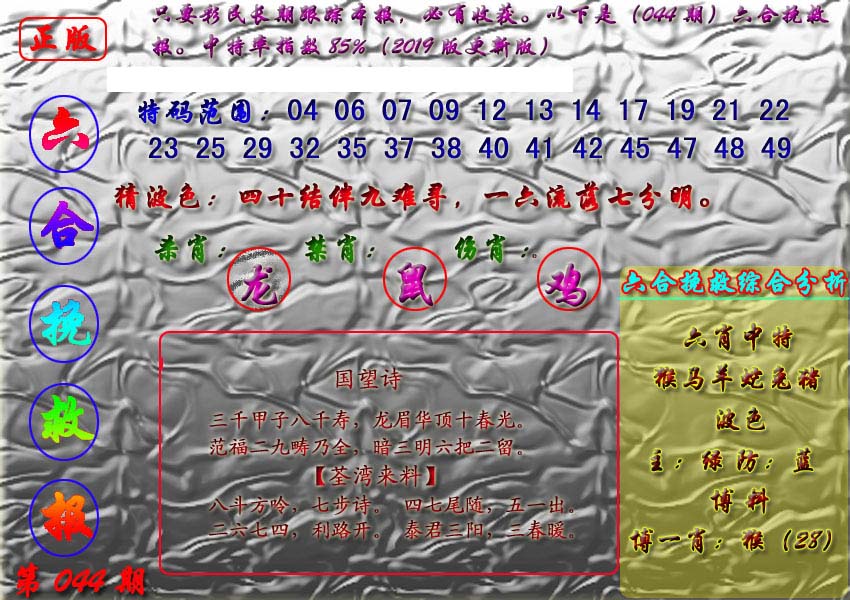 正版
只要彩民长期跟踪本报，必有收获。以下是（044期）六合挽救
报。中特率指数85%（2019版更新版）
六合挽救报
第044期
特码范围：04 06 07 09 12 13 14 17 19 21 22
23 25 29 32 35 37 38 40 41 42 45 47 48 49
猜波色：四十结伴九难寻，一六流落七分明。
杀肖：龙 禁肖：鼠 伤肖：鸡
国望诗
三千甲子八千寿，龙眉华顶十春光。
范福二九畴乃全，暗三明六把二留。
【荃湾来料】
八斗方吟，七步诗。 四七尾随，五一出。
二六七四，利路开。 泰君三阳，三春暖。
六合挽救综合分析
六肖中特
猴马羊蛇兔猪
波色
主：绿 防：蓝
博料
博一肖：猴（28）